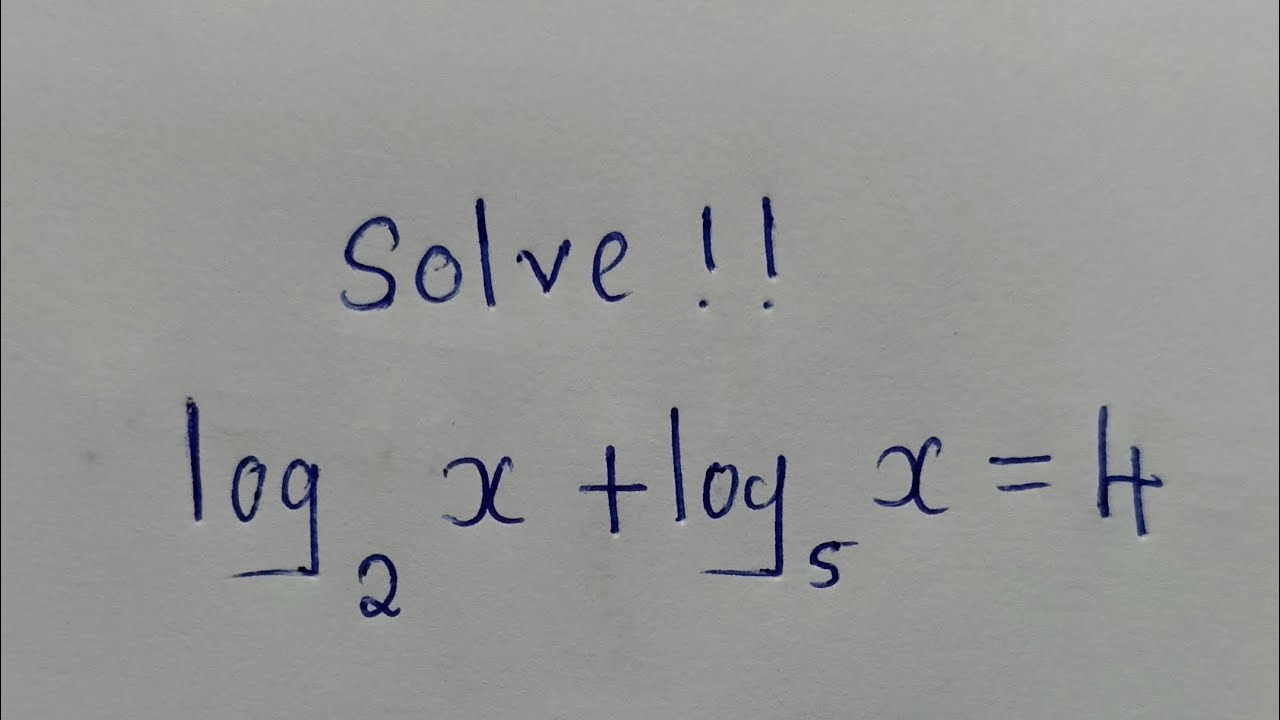 Solve !!
log₂ x + log₅ x = 4